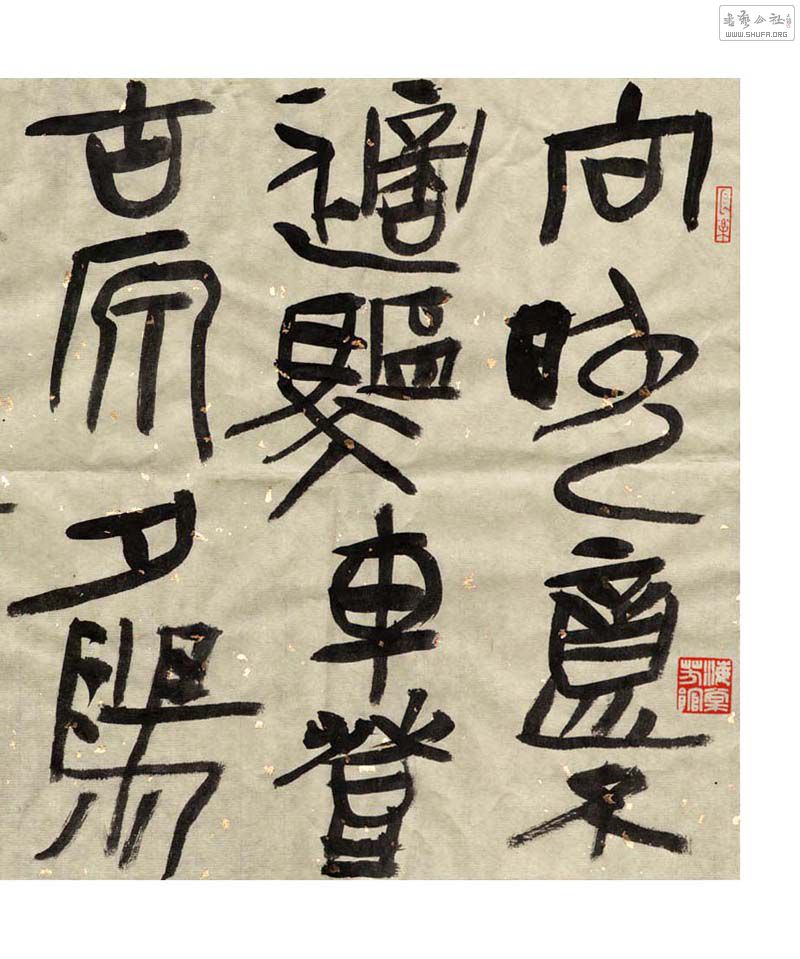 書藝公社
WWW.SHUFA.ORG
向晚意不
適驅車登
古原夕陽